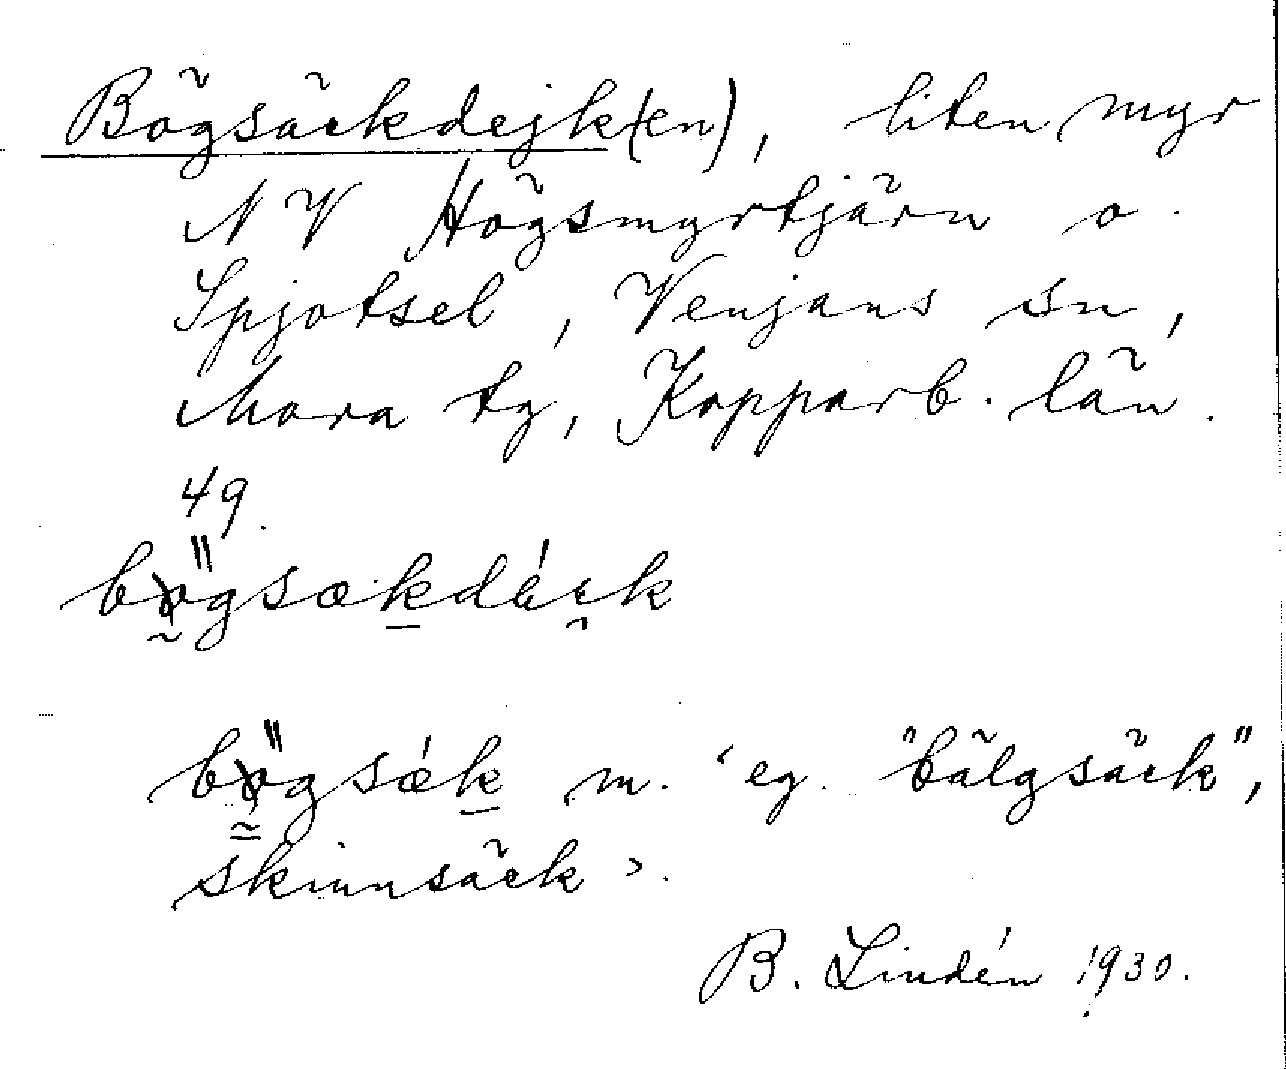 Bögsäckdejk(en), liten myr
NV Högsmyrtjärn o.
Spjotsel, Venjans sn,
Mora tg, Kopparb. län.
49.
bö̰gsækdáɛk
bö̰gsǽk m. ‘eg. "bälgsäck",
skinnsäck’.
B. Lindén 1930.